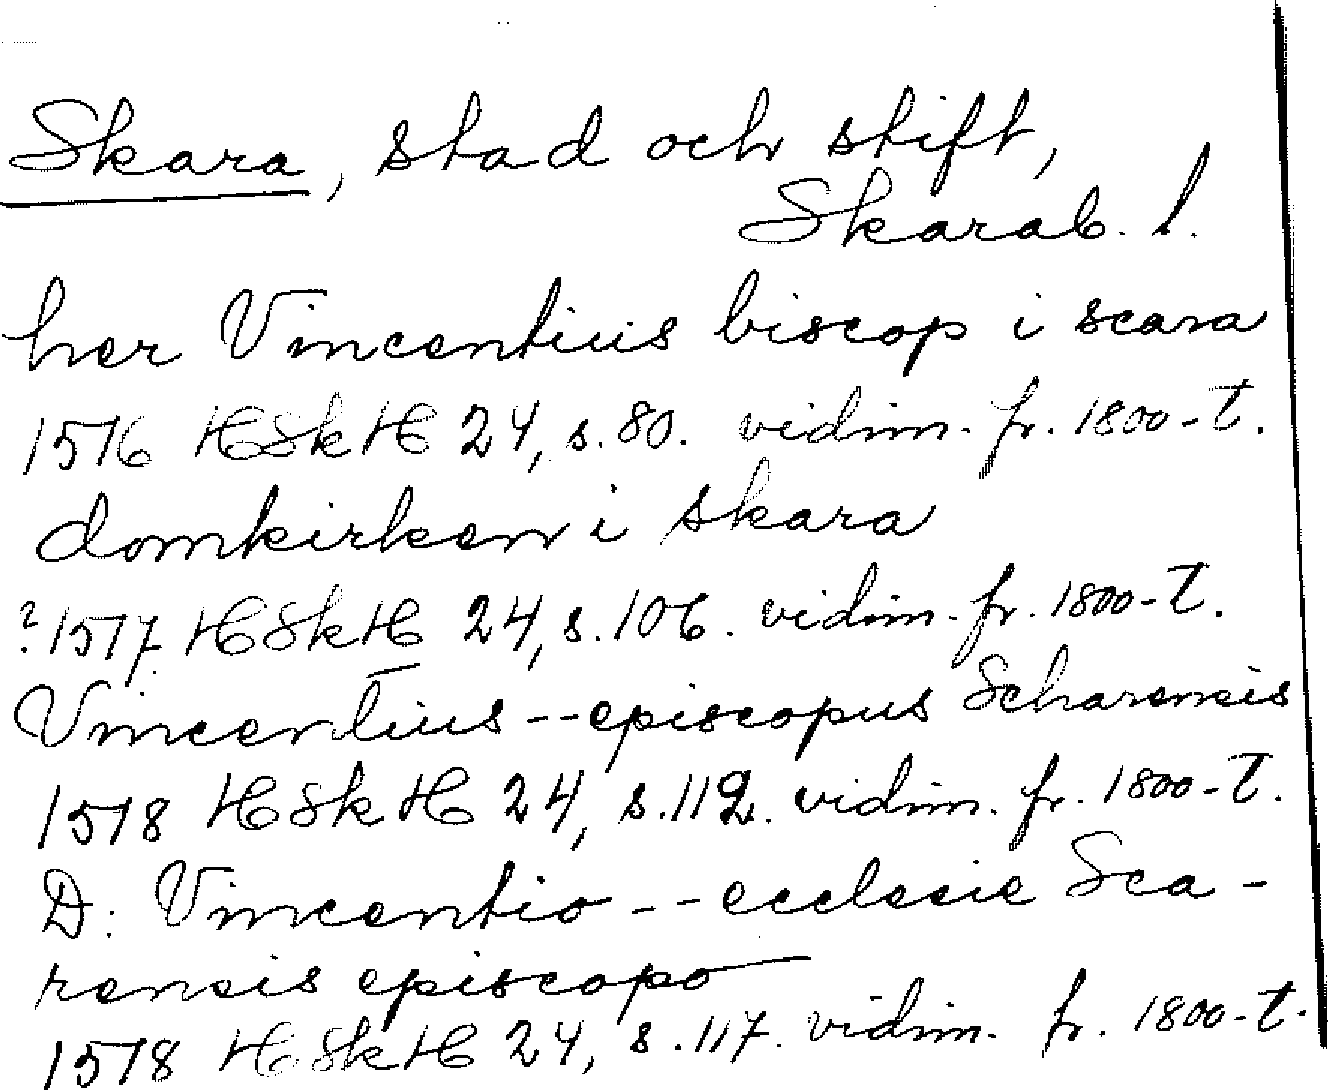 Skara, stad och stift,
Skarab. l.
her Vincentius biscop i scara
1516 HSkH 24, s. 80. vidim. fr. 1800-t.
domkirken i skara
?1517 HSkH 24, s. 106. vidim. fr. 1800-t.
Vincentius -- episcopus Scharensis
1518 HSkH 24, s. 112. vidim. fr. 1800-t.
D: Vincentio -- ecclesie Sca-
rensis episcopo
1518 HSkH 24, s. 117. vidim. fr. 1800-t.